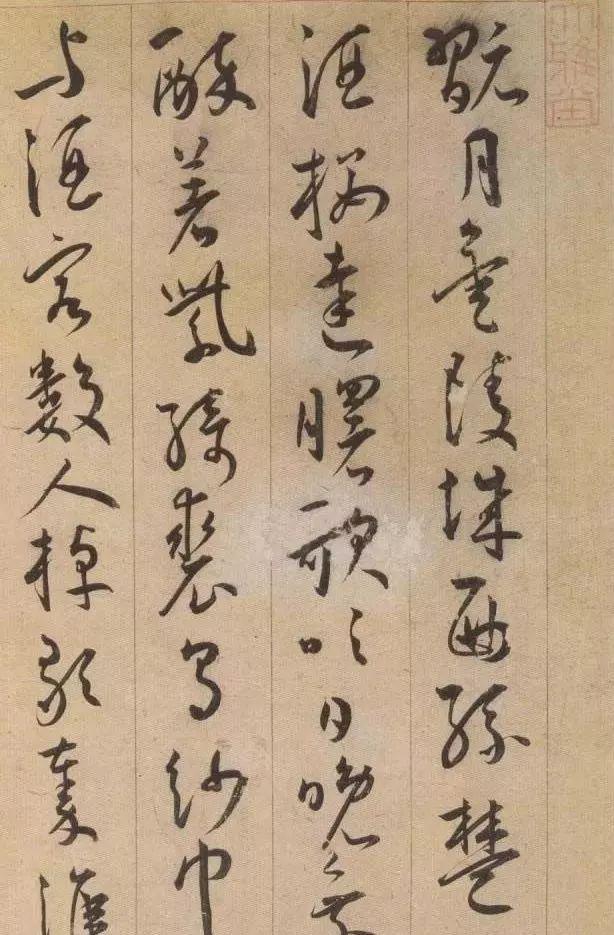 翫月金陵城西孫楚
酒樓達曙歌吹日晚乘
醉著紫綺裘烏紗巾
与酒客數人棹歌秦淮